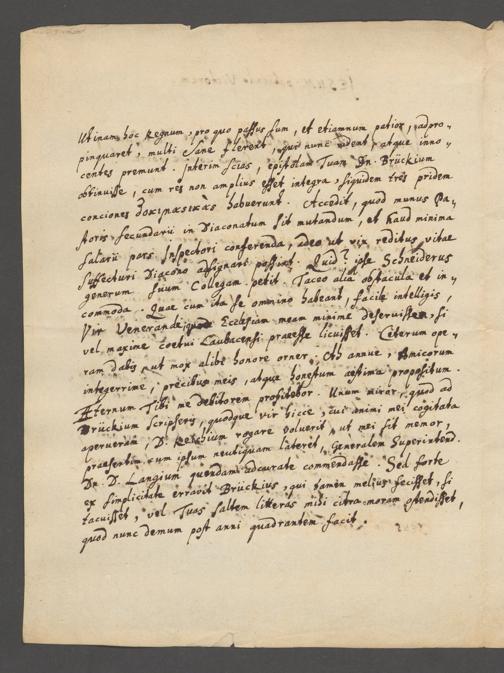 Utinam hoc Regnum, pro quo passus sum, et etiamnum patior, adpro-
pinquaret, multi sane flerent, qui nunc rident, atque inno-
centes premunt. Interim scias, epistolam Tuam Dn. Brückium
obtinuisse, cum res non amplius esset integra, siquidem tres pridem
conciones δοκιμαστικὰς habuerunt. Accedit, quod munus Pa-
storis secundarii in Diaconatum sit mutandum, et haud minima
salarii pars Inspectori conferenda, adeo ut vix reditus vitae
suffecturi Diacono assignari possint. Quid? ipse Schneiderus
generum suum Collegam petit. Taceo alia obstacula et in-
commoda. Quae cum ita se omnino habeant, facile intelligis,
Vir Venerande, quod Ecclesiam meam minime deseruissem, si
vel maxime coetui Laubacensi praeesse licuisset. Ceterum ope-
ram dabis, ut mox alibi honore orner. Ah annue, Amicorum
integerrime, precibus meis, atque honestum aestima propositum.
Aeternum Tibi me debitorem profitebor. Unum miror, quod ad
Brückium scripseris, quodque vir hicce, cui animi mei cogitata
aperueram, D. Relchium rogare voluerit, ut mei sit memor,
praesertim cum ipsum neutiquam lateret, Generalem Superintend.
Dn. D. Langium quendam adcurate commendasse. Sed forte
ex simplicitate erravit Brückius, qui tamen melius fecisset, si
tacuisset, vel Tuas saltem litteras mihi citra moram ostendisset,
quod nunc demum post anni quadrantem facit.